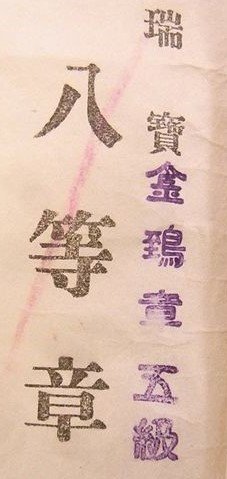 瑞寶金鵄章五級
八等章